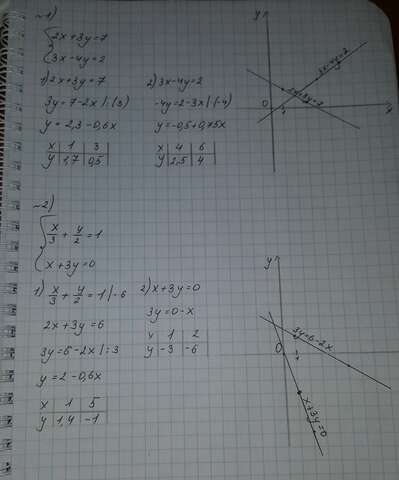 №1)
{2x+3y=7
{3x-4y=2
1) 2x+3y=7
3y=7-2x |:(3)
y=2,3-0,6x
x | 1 | 3
y | 1,7 | 0,5
2) 3x-4y=2
-4y=2-3x |(-4)
y=-0,5+0,75x
x | 4 | 6
y | 2,5 | 4
y
3x-4y=2
2x+3y=7
0
x
№2)
{x/3+y/2=1
{x+3y=0
1) x/3+y/2=1 |·6
2x+3y=6
3y=6-2x |:3
y=2-0,6x
x | 1 | 5
y | 1,4 | -1
2) x+3y=0
3y=0-x
x | 1 | 2
y | -3 | -6
y
3y=6-2x
0
x+3y=0